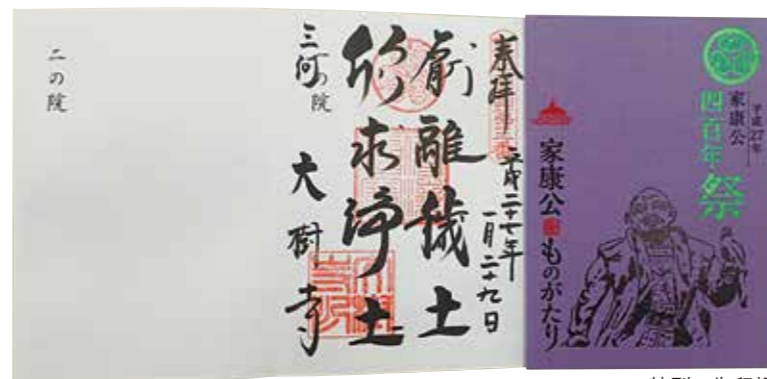 平成27年
家康公
四百年祭
家康公 ものがたり
奉拝
平成二十七年
一月二十九日
厭離穢土
欣求浄土
三河
の院
大樹寺
二の院